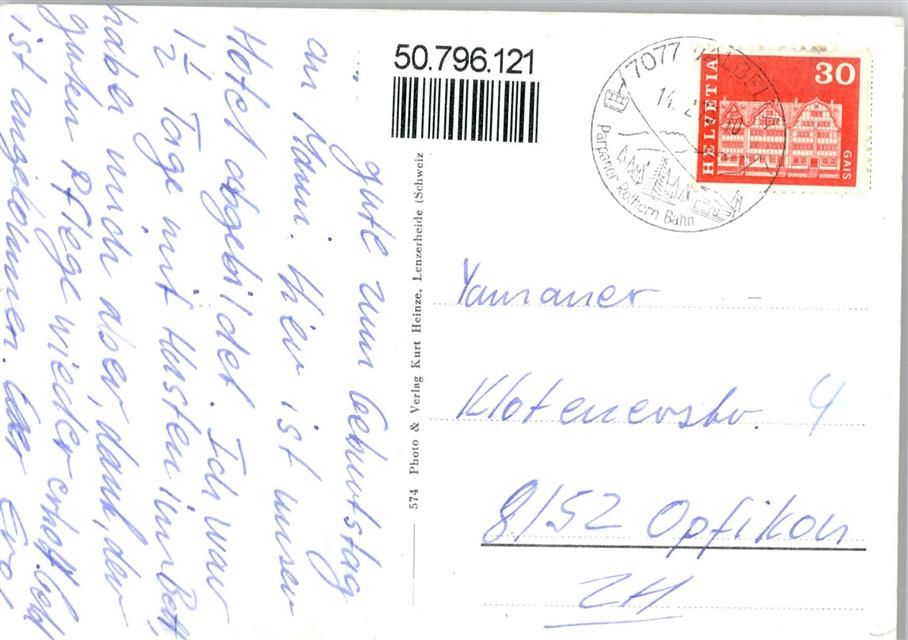 50.796.121
7077 VALBELLA
14. 2.
Parpaner-Rothorn Bahn
HELVETIA
30
GAIS
574 Photo & Verlag Kurt Heinze, Lenzerheide (Schweiz
gute zum Geburtstag
an Mami. Hier ist unser
Hotel abgebildet. Ich war
1½ Tage mit Husten im Bett,
habe mich aber, dank, der
guten Pflege wieder erholt.
ist angekommen.
Klotenerstr. 4
8152 Opfikon
ZH